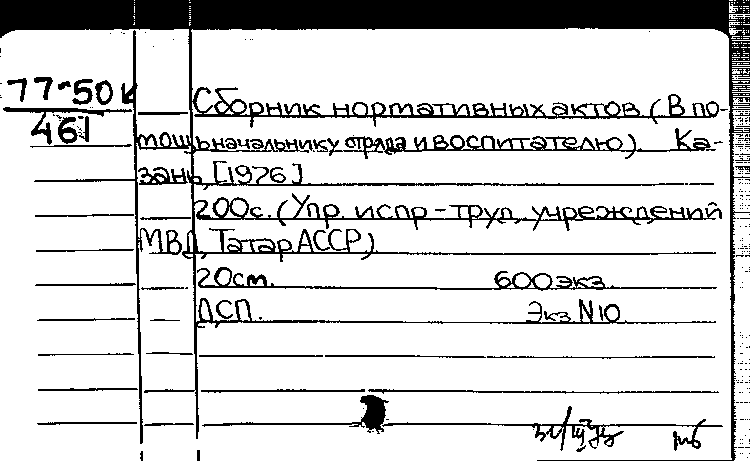 77-50к
461
Сборник нормативных актов (В по-
мощь начальнику отряда и воспитателю). Ка-
зань, [1976]
200с. (Упр. испр-труд. учреждений
МВД, Татар АССР)
20см. 600 экз.
ДСП. Экз. N10